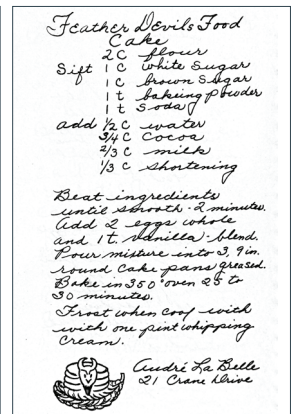 Feather Devils Food
Cake
2 C flour
Sift 1 C white sugar
1 C brown sugar
1 t bakeing powder
1 t soda
add 1/2 C water
3/4 C cocoa
2/3 C milk
1/3 C shortening
Beat ingredients
until smooth - 2 minutes.
Add 2 eggs whole
and 1 t. vanilla - blend.
Pour mixture into 3, 9 in.
round cake pans greased.
Bake in 350° oven 25 to
30 minutes.
Frost when cool with
with one pint whipping
cream.
André La Belle
21 Crane Drive